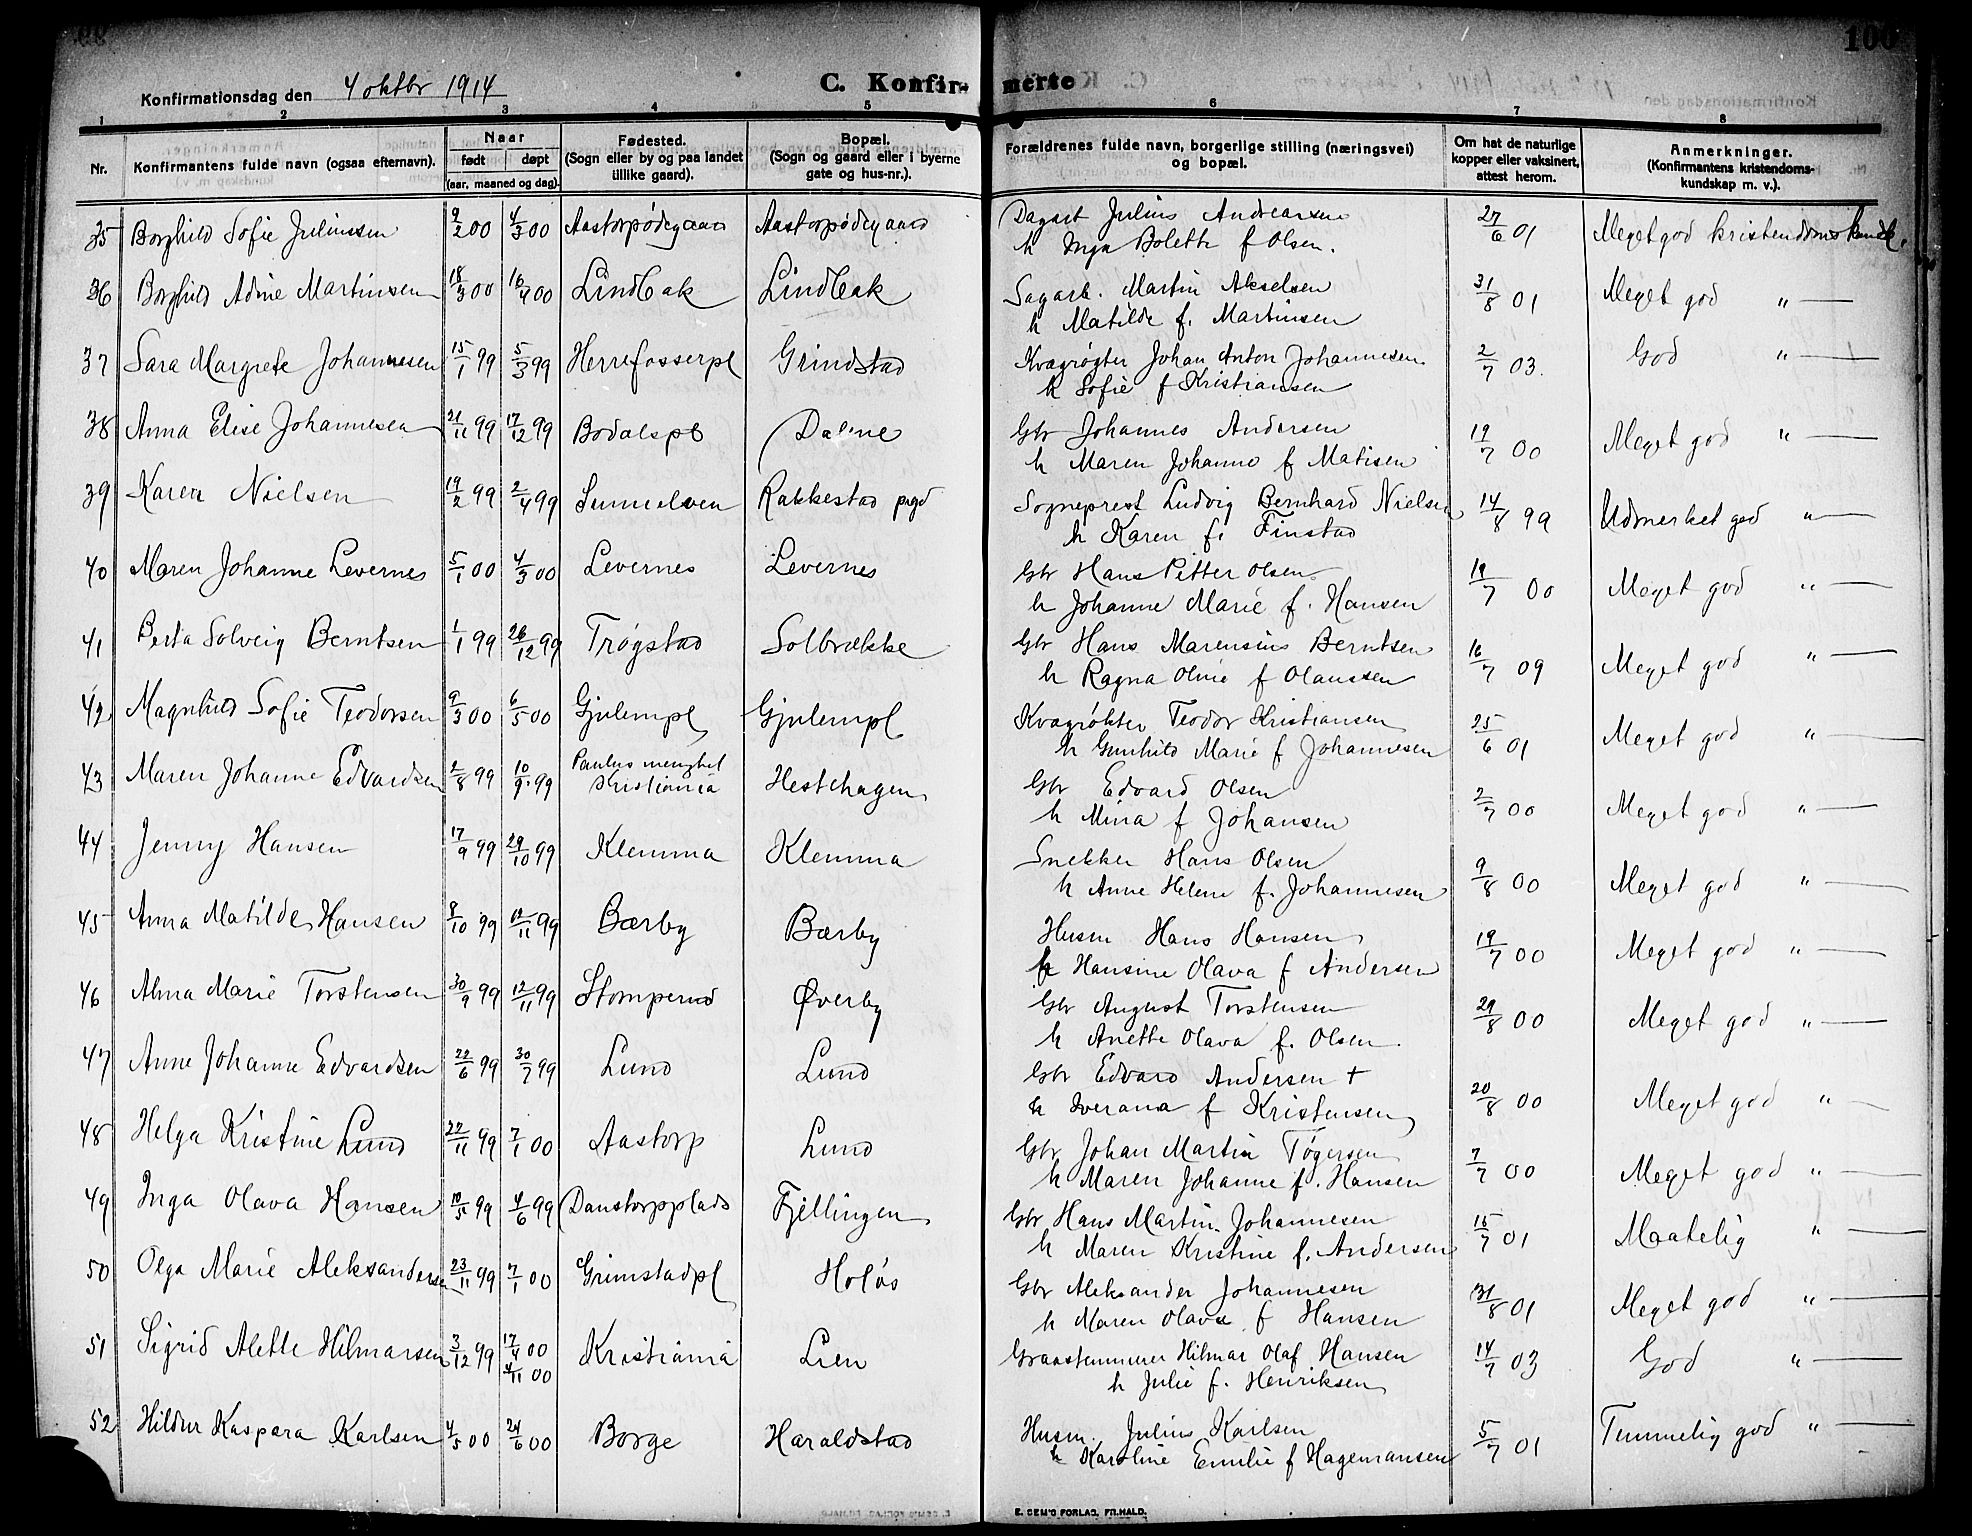 100
Konfirmationsdag den 4 oktbr 1914
C. Konfir- merte
1 2 3 4 5 6 7 8
Nr. Konfirmantens fulde navn (ogsaa efternavn). Naar født døpt (aar, maaned og dag). Fødested. (Sogn eller by og paa landet tillike gaard). Bopæl. (Sogn og gaard eller i byerne gate og hus-nr.). Forældrenes fulde navn, borgerlige stilling (næringsvei) og bopæl. Om hat de naturlige kopper eller vaksinert, attest herom. Anmerkninger. (Konfirmantens kristendoms-kundskap m. v.).
35 Borghild Sofie Juliussen 9/2 00 4/3 00 Aastorpødegaard Aastorpødegaard Dagarb Julius Andreassen 27/6 01 Meget god kristendomskundsk.
h Inga Bolette f Olsen.
36 Borghild Adine Martinsen 18/3 00 16/4 00 Lindbak Lindbak Sagarb. Martin Akselsen 31/8 01 Meget god " —
h Matilde f. Martinsen
37 Sara Margrete Johannesen 15/1 99 5/3 99 Herrefosserpl Grindstad Kvægrøgter Johan Anton Johannesen 2/7 03. God " —
h Sofie f Kristiansen
38 Anna Elise Johannesen 21/11 99 17/12 99 Bodalspl Dalene Gbr Johannes Andersen 19/7 00 Meget god " —
h Maren Johanne f Matisen
39 Karen Nielsen 19/2 99 2/4 99 Sunnelven Rakkestad prgd Sogneprest Ludvig Bernhard Nielsen 14/8 99 Udmerket god " —
h Karen f. Finstad
40 Maren Johanne Levernes 5/1 00 4/3 00 Levernes Levernes Gbr Hans Petter Olsen 19/7 00 Meget god " —
h Johanne Marie f. Hansen
41 Berta Solveig Berntsen 1/1 99 26/12 99 Trøgstad Solbrække Gbr Hans Marensius Berntsen 16/7 09 Meget god " —
h Ragna Oline f Olaussen
42 Magnhild Sofie Teodorsen 9/3 00 6/5 00 Gjulempl Gjulempl Kvægrøkter Teodor Kristiansen 25/6 01 Meget god " —
h Gunhild Marie f Johannesen
43 Maren Johanne Edvardsen 2/8 99 10/9 99 Paulus menighet Kristiania Hestehagen Gbr Edvard Olsen 2/7 00 Meget god " —
h Mina f Johansen
44 Jenny Hansen 17/9 99 29/10 99 Klemma Klemma Snekker Hans Olsen 9/8 00 Meget god " —
h Anne Helene f. Johannesen
45 Anna Matilde Hansen 8/10 99 12/11 99 Bærby Bærby Husm Hans Hansen 19/7 00 Meget god " —
h Hansine Olava f Andersen
46 Alma Marie Torstensen 30/9 99 12/11 99 Stomperud Øverby Gbr August Torstensen 29/8 00 Meget god " —
h Anette Olava f. Olsen
47 Anne Johanne Edvardsen 22/6 99 30/7 99 Lund Lund Gbr Edvard Andersen + 20/8 00 Meget god " —
h Iverana f Kristensen
48 Helga Kristine Lund 22/11 99 7/1 00 Aastorp Lund Gbr Johan Martin Tøgersen 7/7 00 Meget god " —
h Maren Johanne f. Hansen
49 Inga Olava Hansen 10/5 99 4/6 99 Danstorpplads Fjellingen Gbr Hans Martin Johannesen 15/7 01 Maatelig " —
h Maren Kristine f. Andersen
50 Olga Marie Aleksandersen 23/11 99 7/1 00 Grimstadpl Holøs Gbr Aleksander Johannesen 31/8 01 Meget god " —
h Maren Olava f Hansen
51 Sigrid Alette Hilmarsen 3/12 99 17/4 00 4/11 00 Kristiania Lien Graastemmerer Hilmar Olaf Hansen 14/7 03 God " —
h Julie f. Henriksen
52 Hildur Kaspara Karlsen 4/5 00 24/6 00 Borge Haraldstad Husm. Julius Karlsen 5/7 01 Temmelig god " —
h Karoline Emilie f Hagemansen
E. SEM'S FORLAG, FR.HALD.